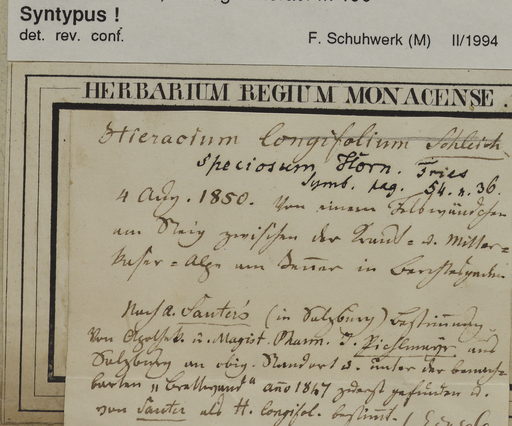 Syntypus !
det. rev. conf. F. Schuhwerk (M) II/1994
HERBARIUM REGIUM MONACENSE.
Hieracium longifolium Schleich
speciosum Horn. Fries
Symb. pag. 54. n. 36.
4 Aug. 1850. Von einem Felswändchen
am Steig zwischen der Kraut= u. Mitter=
kaser=Alpe am Jenner in Berchtesgaden
Nach A. Sauter's (in Salzburg) Bestimmung.
Von Apothek. u. Magist. Pharm. J. Pichlmayr aus
Salzburg an obig. Standort u. unter der benach=
barten „Brettwand" año 1847 zuerst gefunden u.
von Sauter als H. longifol. bestimmt.